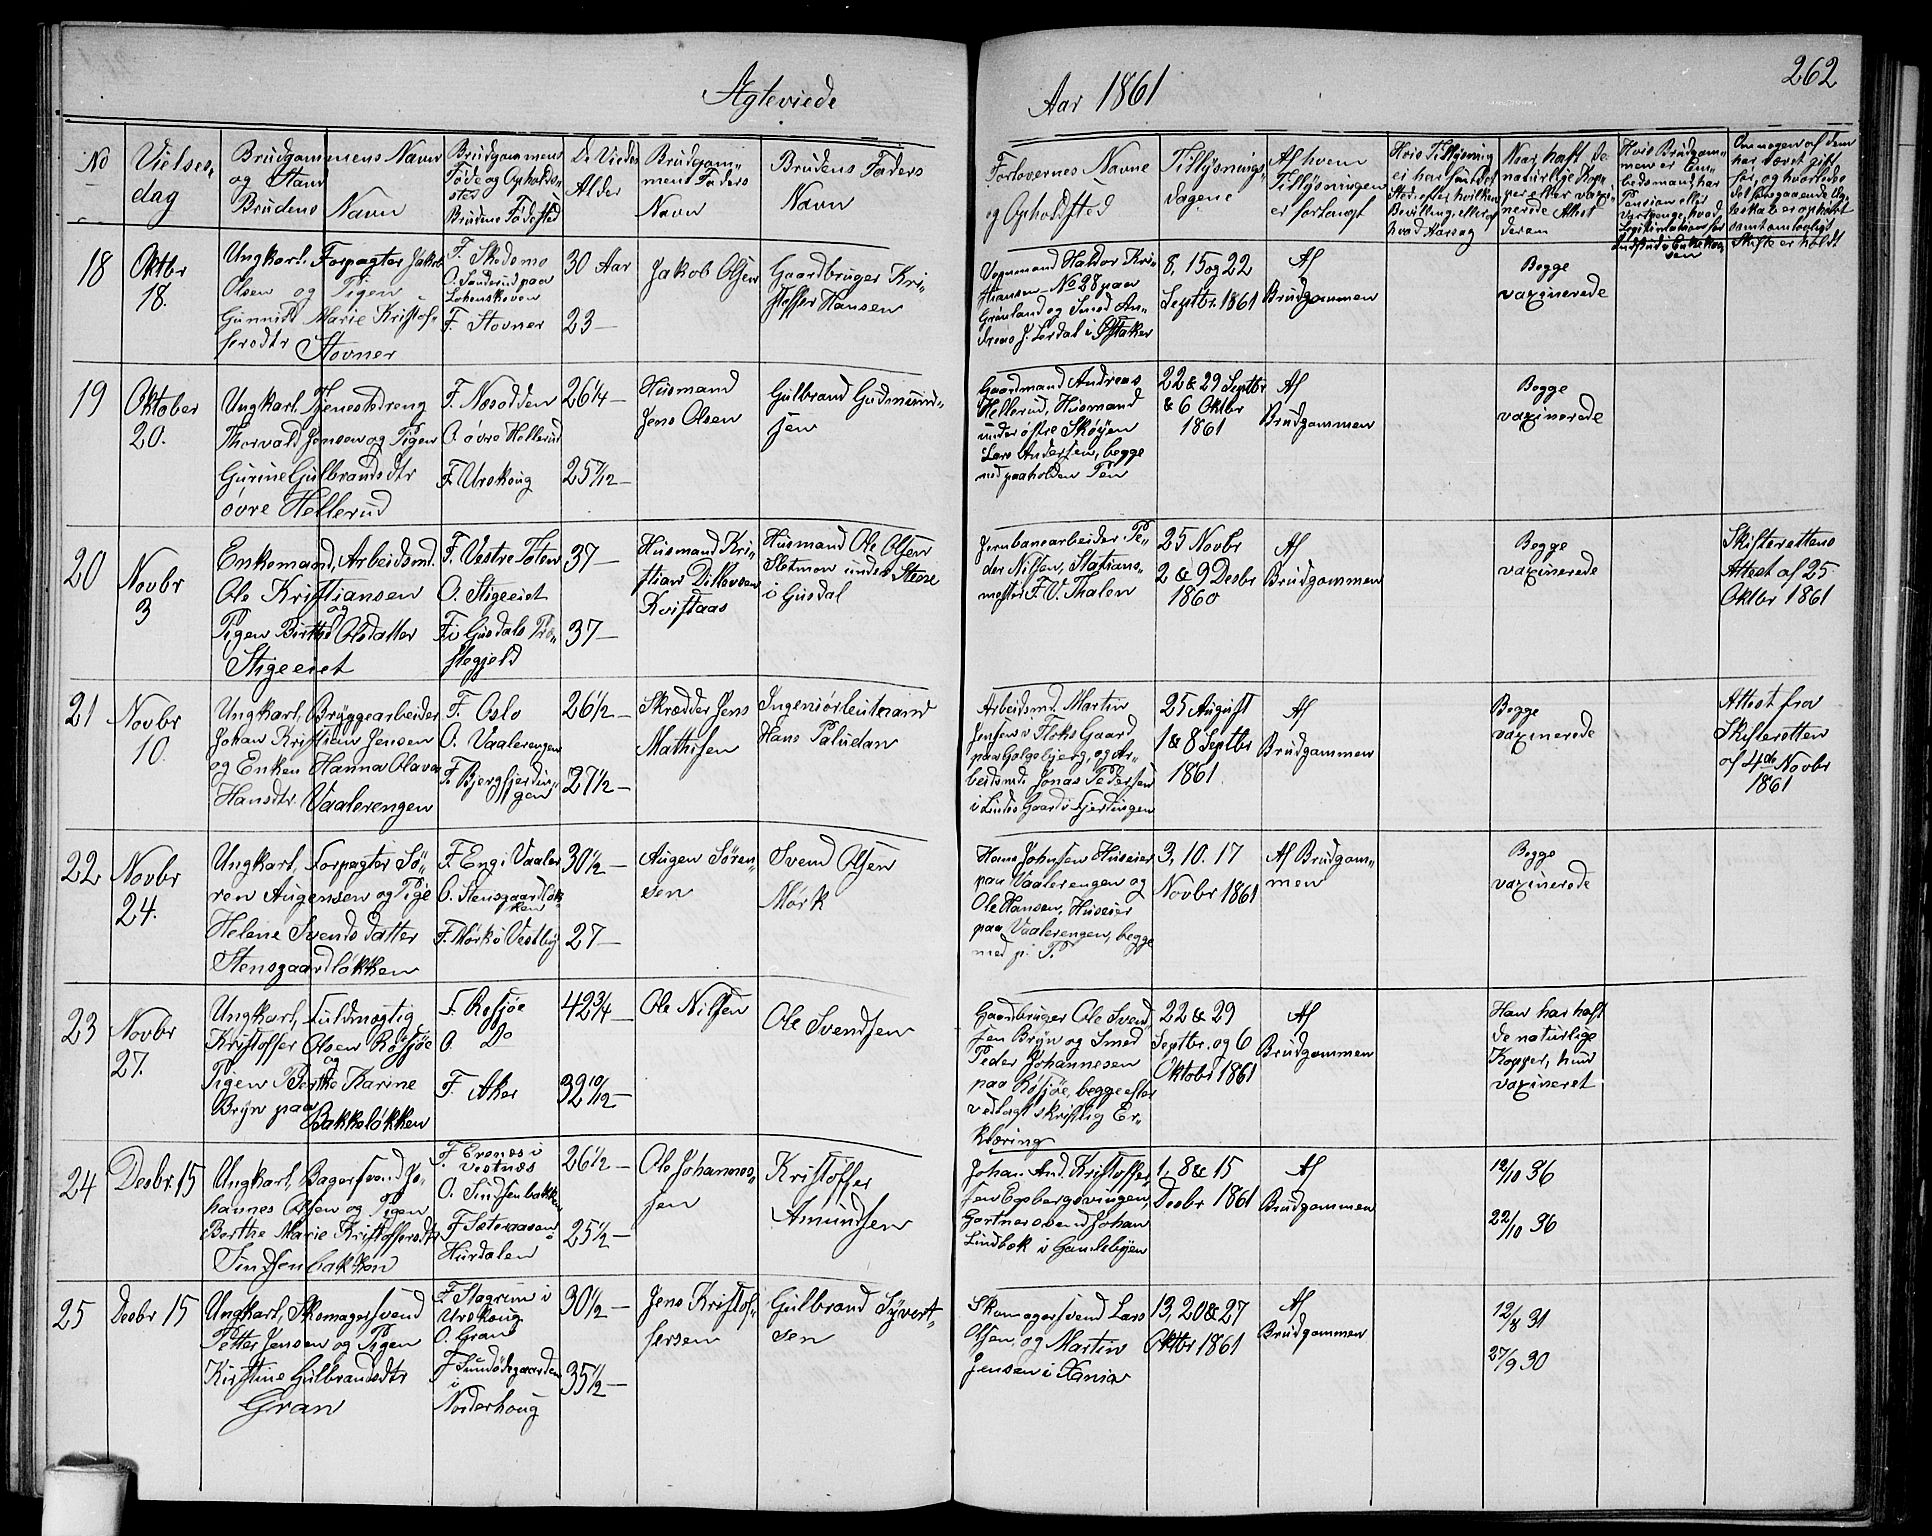 Ægteviede
Aar 1861
262
No
Vielses-
dag
Brudgommens Navn
og Stand
Brudens Navn
Brudgommens
Føde og Opholds-
sted
Brudens Fødested
De Viedes
Alder
Brudgom-
mens Faders
Navn
Brudens Faders
Navn
Forlovernes Navne
og Opholdsted
Tillysnings-
dagene
Af hvem
Tillysningen
er forlangt
Hvis Tillysning
ei har fundet
Sted, efter hvilken
Bevilling, eller af
hvad Aarsag
Naar haft de
naturlige Kop-
per eller vaxi-
nerede Attest
derom
Hvis Brudgom-
men er Em-
bedsmand, har
Pension eller
Vartpenge, hvad
Legitimation for
Indskud i Enkekas-
sen
Om nogen af dem
har været gift
før, og hvorledes
det foregaaende Æg-
teskab er ophævet
samt om lovligt
Skifte er holdt
18
Oktbr
18.
Ungkarl. Forpagter Jakob
Olsen og Pigen
Gunnild Marie Kristof-
fersdtr Stovner
F. Skedsmo
O. Sanderud paa
Lahenskoven
F. Stovner
30 Aar
23 —
Jakob Olsen
Gaardbruger Kri-
stoffer Hansen
Vognmand Haldor Kri-
stiansen No 28 paa
Grønland og Smed An-
dreas J. Lerdal i Østaker
8, 15 og 22
Septbr. 1861
Af
Brudgommen
Begge
vaxinerede
19
Oktober
20.
Ungkarl. Tjenestedreng
Thorvald Jensen og Pigen
Gurine Gulbrandsdtr
øvre Hellerud
F. Næsodden
O. øvre Hellerud
F. Urskoug
26 1/4 —
25 7/12 —
Husmand
Jens Olsen
Gulbrand Gudmund-
sen
Gaardmand Andreas
Hellerud, Husmand
under østre Skøyen
Lars Andersen, begge
med paaholden Pen
22 & 29 Septbr
& 6 Oktbr
1861
Af
Brudgommen
Begge
vaxinerede
20
Novbr
3
Enkemand, Arbeidsmd.
Ole Kristiansen
og
Pigen Birthe Olsdatter
Stigeeiet
F. Vestre Toten
O. Stigeeiet
F. i Gusdals Præ-
stegjeld
37 —
37 —
Husmand Kri-
stian Ditlevsen
Kvistaas
Husmand Ole Olsen
Sletmon under Stene
i Gusdal
Jernbanearbeider Pe-
der Nilsen, Stations-
mester F. V. Thalen
25 Novbr
2 & 9 Desbr
1860
Af
Brudgommen
Begge
vaxinerede
Skifterettens
Attest af 25
Oktbr 1861
21
Novbr
10.
Ungkarl, Bryggearbeider
Johan Kristian Jensen
og Enken Hanna Olava
Hansdtr. Vaalerengen
F. Oslo
O. Vaalerengen
F. Bjergfjerdin-
gen
26 1/2 —
27 1/2 —
Skrædder Jens
Mathisen
Ingeniørleutenand
Hans Paludan
Arbeidsmd. Martin
Jensen i Floks Gaard
paa Galgebjerg, og Ar-
beidsmd. Jonas Pedersen
i Lindes Gaard i Fjerdingen
25 August
1 & 8 Septbr
1861.
Af
Brudgommen
Begge
vaxinerede
Attest fra
Skifteretten
af 4de Novbr
1861
22
Novbr
24.
Ungkarl, Forpagter Sø-
ren Augensen og Pige
Helene Svendsdatter
Stensgaardløkken
F. Eng i Vaaler
O. Stensgaardløk-
ken
F. Mørk i Vestby
30 1/2 —
27 —
Augen Søren-
sen
Svend Olsen
Mørk
Hans Johnsen Huseier
paa Vaalerengen og
Ole Hansen, Huseier
paa Vaalerengen, begge
med p. P.
3, 10. 17
Novbr 1861
Af Brudgom-
men
Begge
vaxinerede
23
Novbr
27.
Ungkarl, Fuldmægtig
Kristoffer Olsen Røsjøe
og
Pigen Berthe Karine
Bryn paa
Bakkeløkken
F. Røsjøe
O. Do
F. Aker
42 3/4 —
32 10/12 —
Ole Nilsen
Ole Svendsen
Gaardbruger Ole Svend-
sen Bryn og Smed
Peder Johannesen
paa Røsjøe, begge efter
vedlagt skriftlig Er-
klæring
22 & 29
Septbr. og 6
Oktobr 1861
Af
Brudgommen
Han har haft
de naturlige
Kopper, hun
vaxineret
24
Desbr. 15
Ungkarl, Bagersvend Jo-
hannes Olsen og Pigen
Berthe Marie Kristoffersdtr
Sindsenbakken
F. Erenæs i
Vestnæs
O. Sindsenbakken
F. Sæteraasen i
Hurdalen
26 1/2 —
25 1/2 —
Ole Johannes-
sen
Kristoffer
Amundsen
Johan And. Kristoffer-
sen Egebergsvingen,
Gartnersvend Johan
Lindbæk i Gamlebyen
1, 8 & 15
Desbr 1861
Af
Brudgommen
12/10 36
22/10 36
25
Desbr 15
Ungkarl, Skomagersvend
Petter Jensen og Pigen
Kirstine Gulbrandsdtr
Gran
F. Stagrum i
Urskoug
O. Gran
F. Sundødegaarden
i
Norderhoug
30 1/2 —
35 1/2 —
Jens Kristof-
fersen
Gulbrand Syvert-
sen
Skomagersvend Lars
Olsen, og Martin
Jensen i Xania
13, 20 & 27
Oktbr 1861
Af
Brudgommen
12/8 31
27/9 30